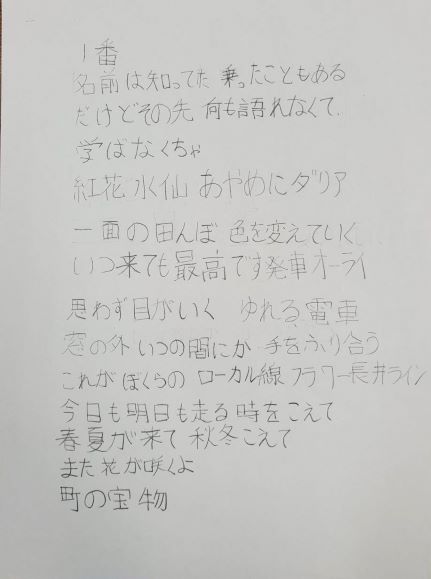 1番
名前は知ってた 乗ったこともある
だけどその先 何も語れなくて
学ばなくちゃ
紅花 水仙 あやめにダリア
一面の田んぼ 色を変えていく
いつ来ても最高です発車オーライ
思わず目がいく ゆれる電車
窓の外 いつの間にか 手をふり合う
これが ぼくらの ローカル線 フラワー長井ライン
今日も明日も走る 時をこえて
春夏が来て 秋冬こえて
また花が咲くよ
町の宝物